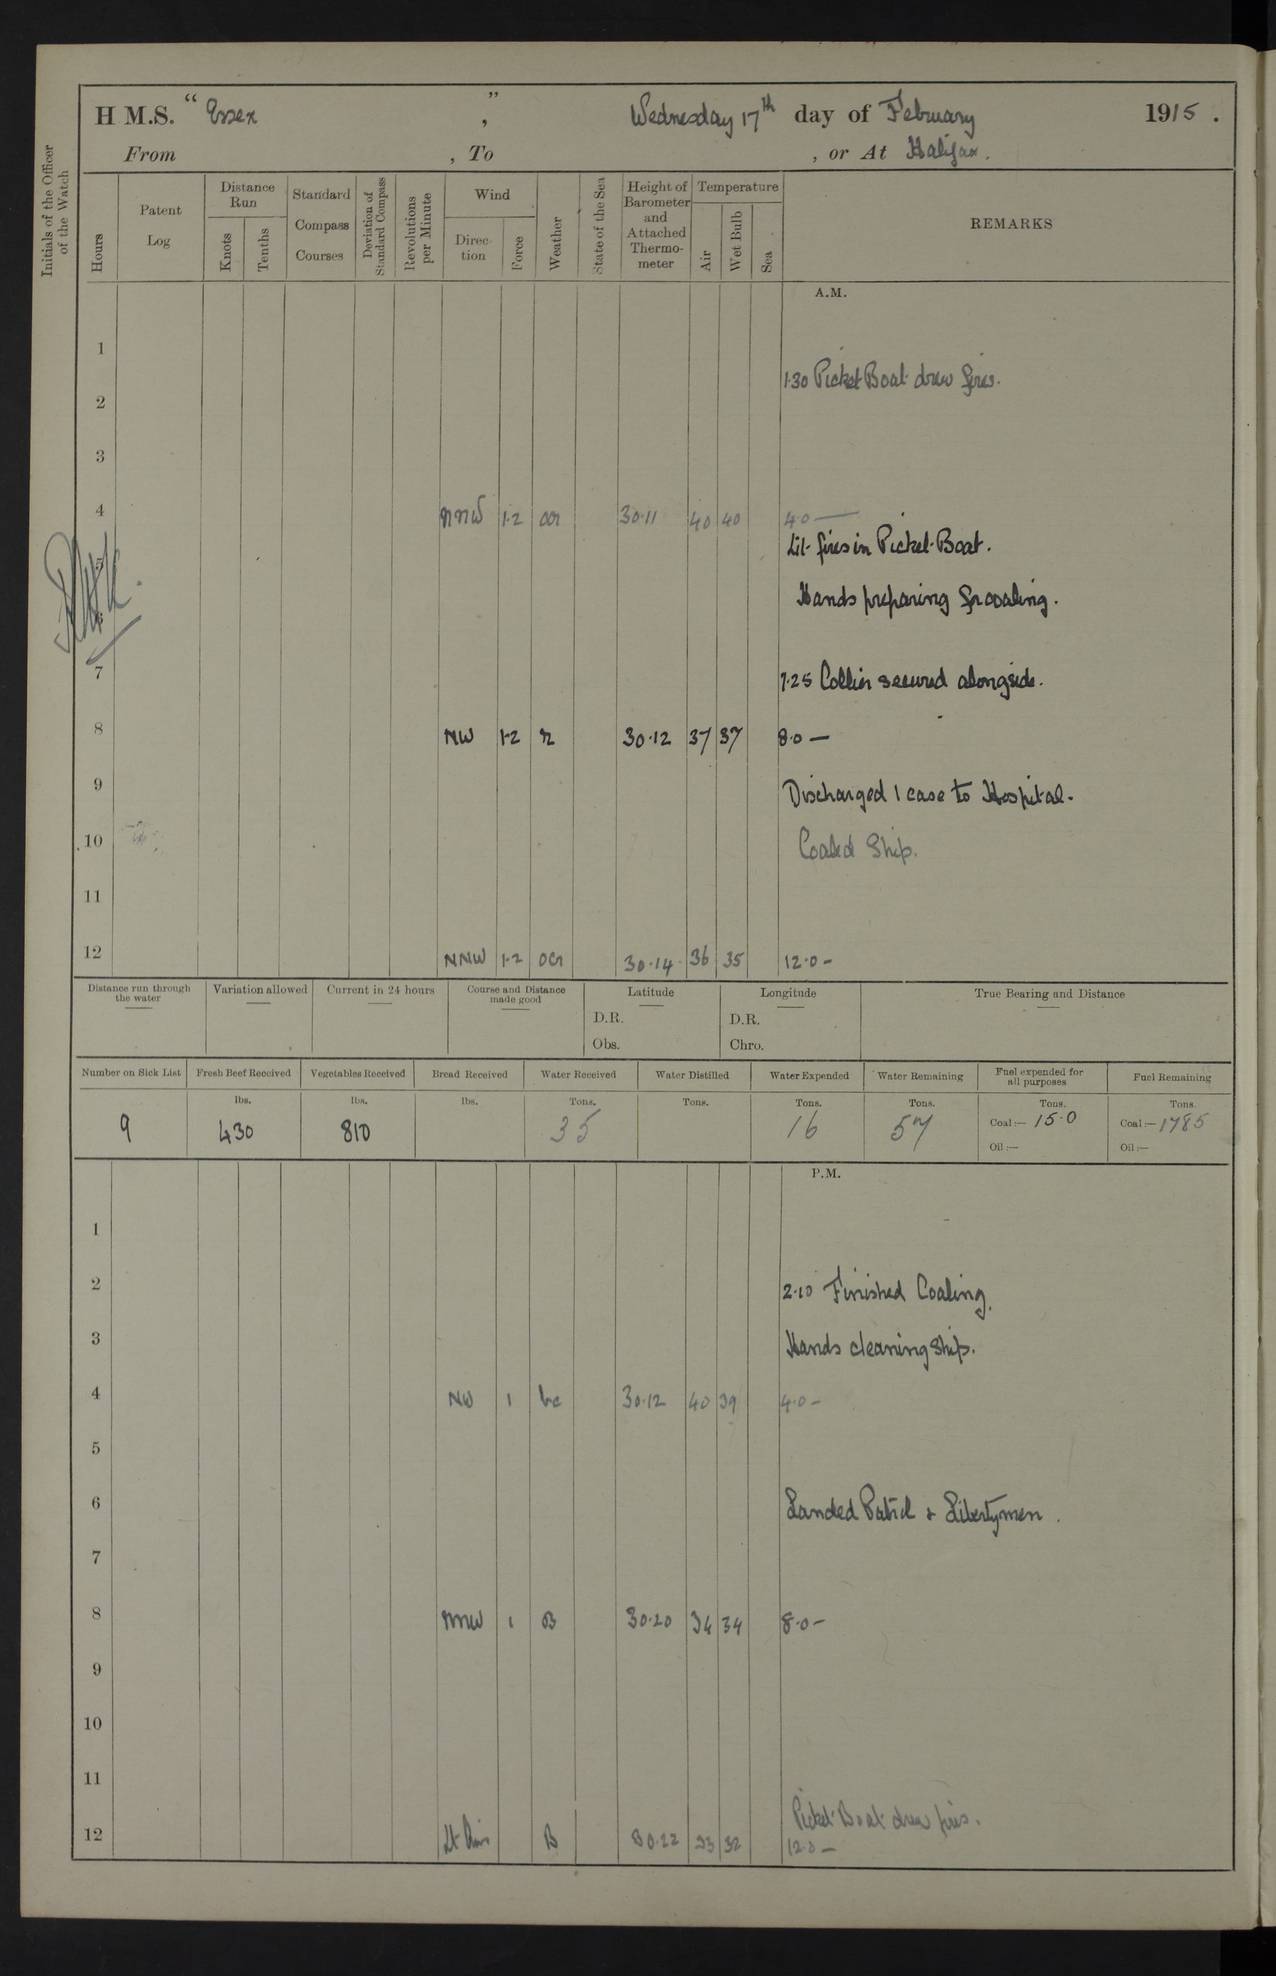 H M.S. “ Essex ” , Wednesday 17th day of February 1915 .
From , To , or At Halifax.
Initials of the Officer of the Watch
Hours
Patent Log
Distance Run
Knots
Tenths
Standard Compass Courses
Deviation of Standard Compass
Revolutions per Minute
Wind
Direc- tion
Force
Weather
State of the Sea
Height of Barometer and Attached Thermo- meter
Temperature
Air
Wet Bulb
Sea
REMARKS
A.M.
1
1.30 Picket Boat drew fires.
2
3
4 NNW 1·2 30·11 40 40 4·0 —
Lit fires in Picket Boat.
Hands preparing for coaling.
7 7.25 Collier secured alongside.
8 NW 1·2 r 30·12 37 37 8·0 —
9 Discharged 1 case to Hospital.
10 Coaled Ship.
11
12 NNW 1·2 30·14 36 35 12·0 -
Distance run through the water
Variation allowed
Current in 24 hours
Course and Distance made good
Latitude
D.R.
Obs.
Longitude
D.R.
Chro.
True Bearing and Distance
Number on Sick List
Fresh Beef Received
Vegetables Received
Bread Received
Water Received
Water Distilled
Water Expended
Water Remaining
Fuel expended for all purposes
Fuel Remaining
lbs. lbs. lbs. Tons. Tons. Tons. Tons. Tons. Tons.
9 430 810 35 16 57 Coal :— 15·0 Coal :— 1785
Oil :— Oil :—
P.M.
1
2 2·10 Finished Coaling.
3 Hands cleaning Ship.
4 NW 1 bc 30·12 40 39 4·0 -
5
6 Landed Patrol & Libertymen .
7
8 NNW 1 B 30·20 34 34 8·0 -
9
10
11
Picket Boat drew fires.
12 Lt Airs B 30·22 33 32 12·0 —